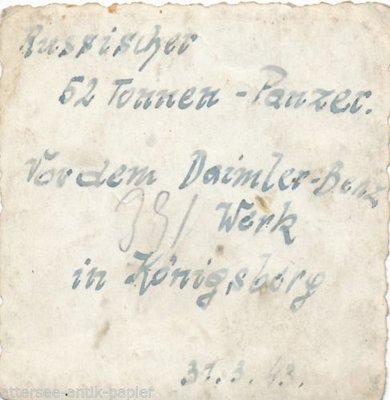 Russischer
52 Tonnen-Panzer.
Vor dem Daimler-Benz
391
Werk
in Königsberg
31.3.42.
attersee-antik-papier